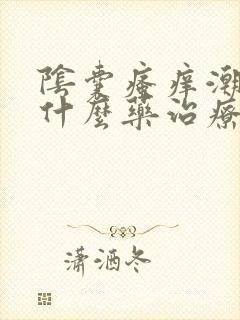 陰囊瘙痒潮
什麼藥治療
瀟洒冬